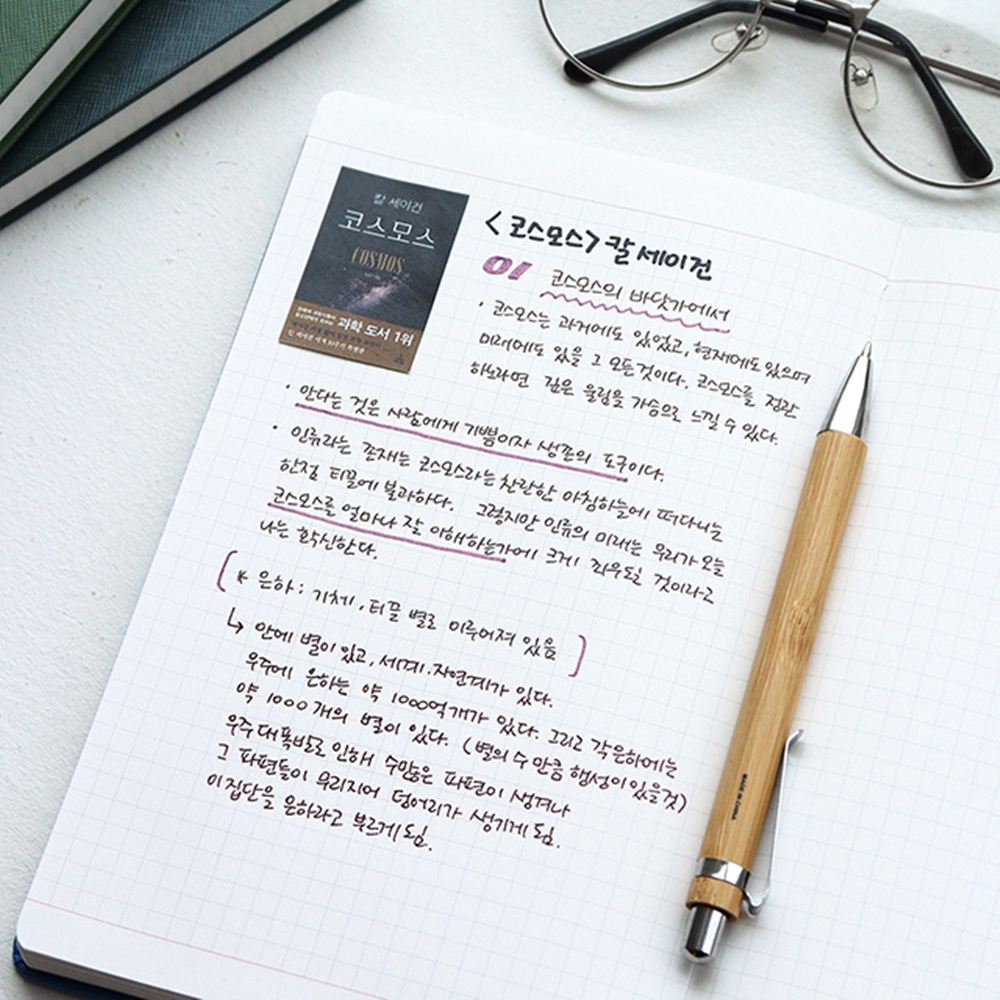 칼 세이건
코스모스
COSMOS
과학 도서 1위
<코스모스> 칼 세이건
01 코스모스의 바닷가에서
· 코스모스는 과거에도 있었고, 현재에도 있으며
미래에도 있을 그 모든것이다. 코스모스를 정관
하노라면 깊은 울림을 가슴으로 느낄 수 있다.
· 안다는 것은 사람에게 기쁨이자 생존의 도구이다.
· 인류라는 존재는 코스모스라는 찬란한 아침하늘에 떠다니는
한점 티끌에 불과하다. 그렇지만 인류의 미래는 우리가 오늘
코스모스를 얼마나 잘 이해하는가에 크게 좌우될 것이라고
나는 확신한다.
* 은하 : 기체, 티끌 별로 이루어져 있음
↳ 안에 별이 있고, 세계·자연계가 있다.
우주에 은하는 약 1000억개가 있다. 그리고 각은하에는
약 1000개의 별이 있다. (별의 수 만큼 행성이 있을것)
우주대폭발로 인해 수많은 파편이 생겨나
그 파편들이 무리지어 덩어리가 생기게 됨.
이 집단을 은하라고 부르게 됨.
MADE IN CHINA